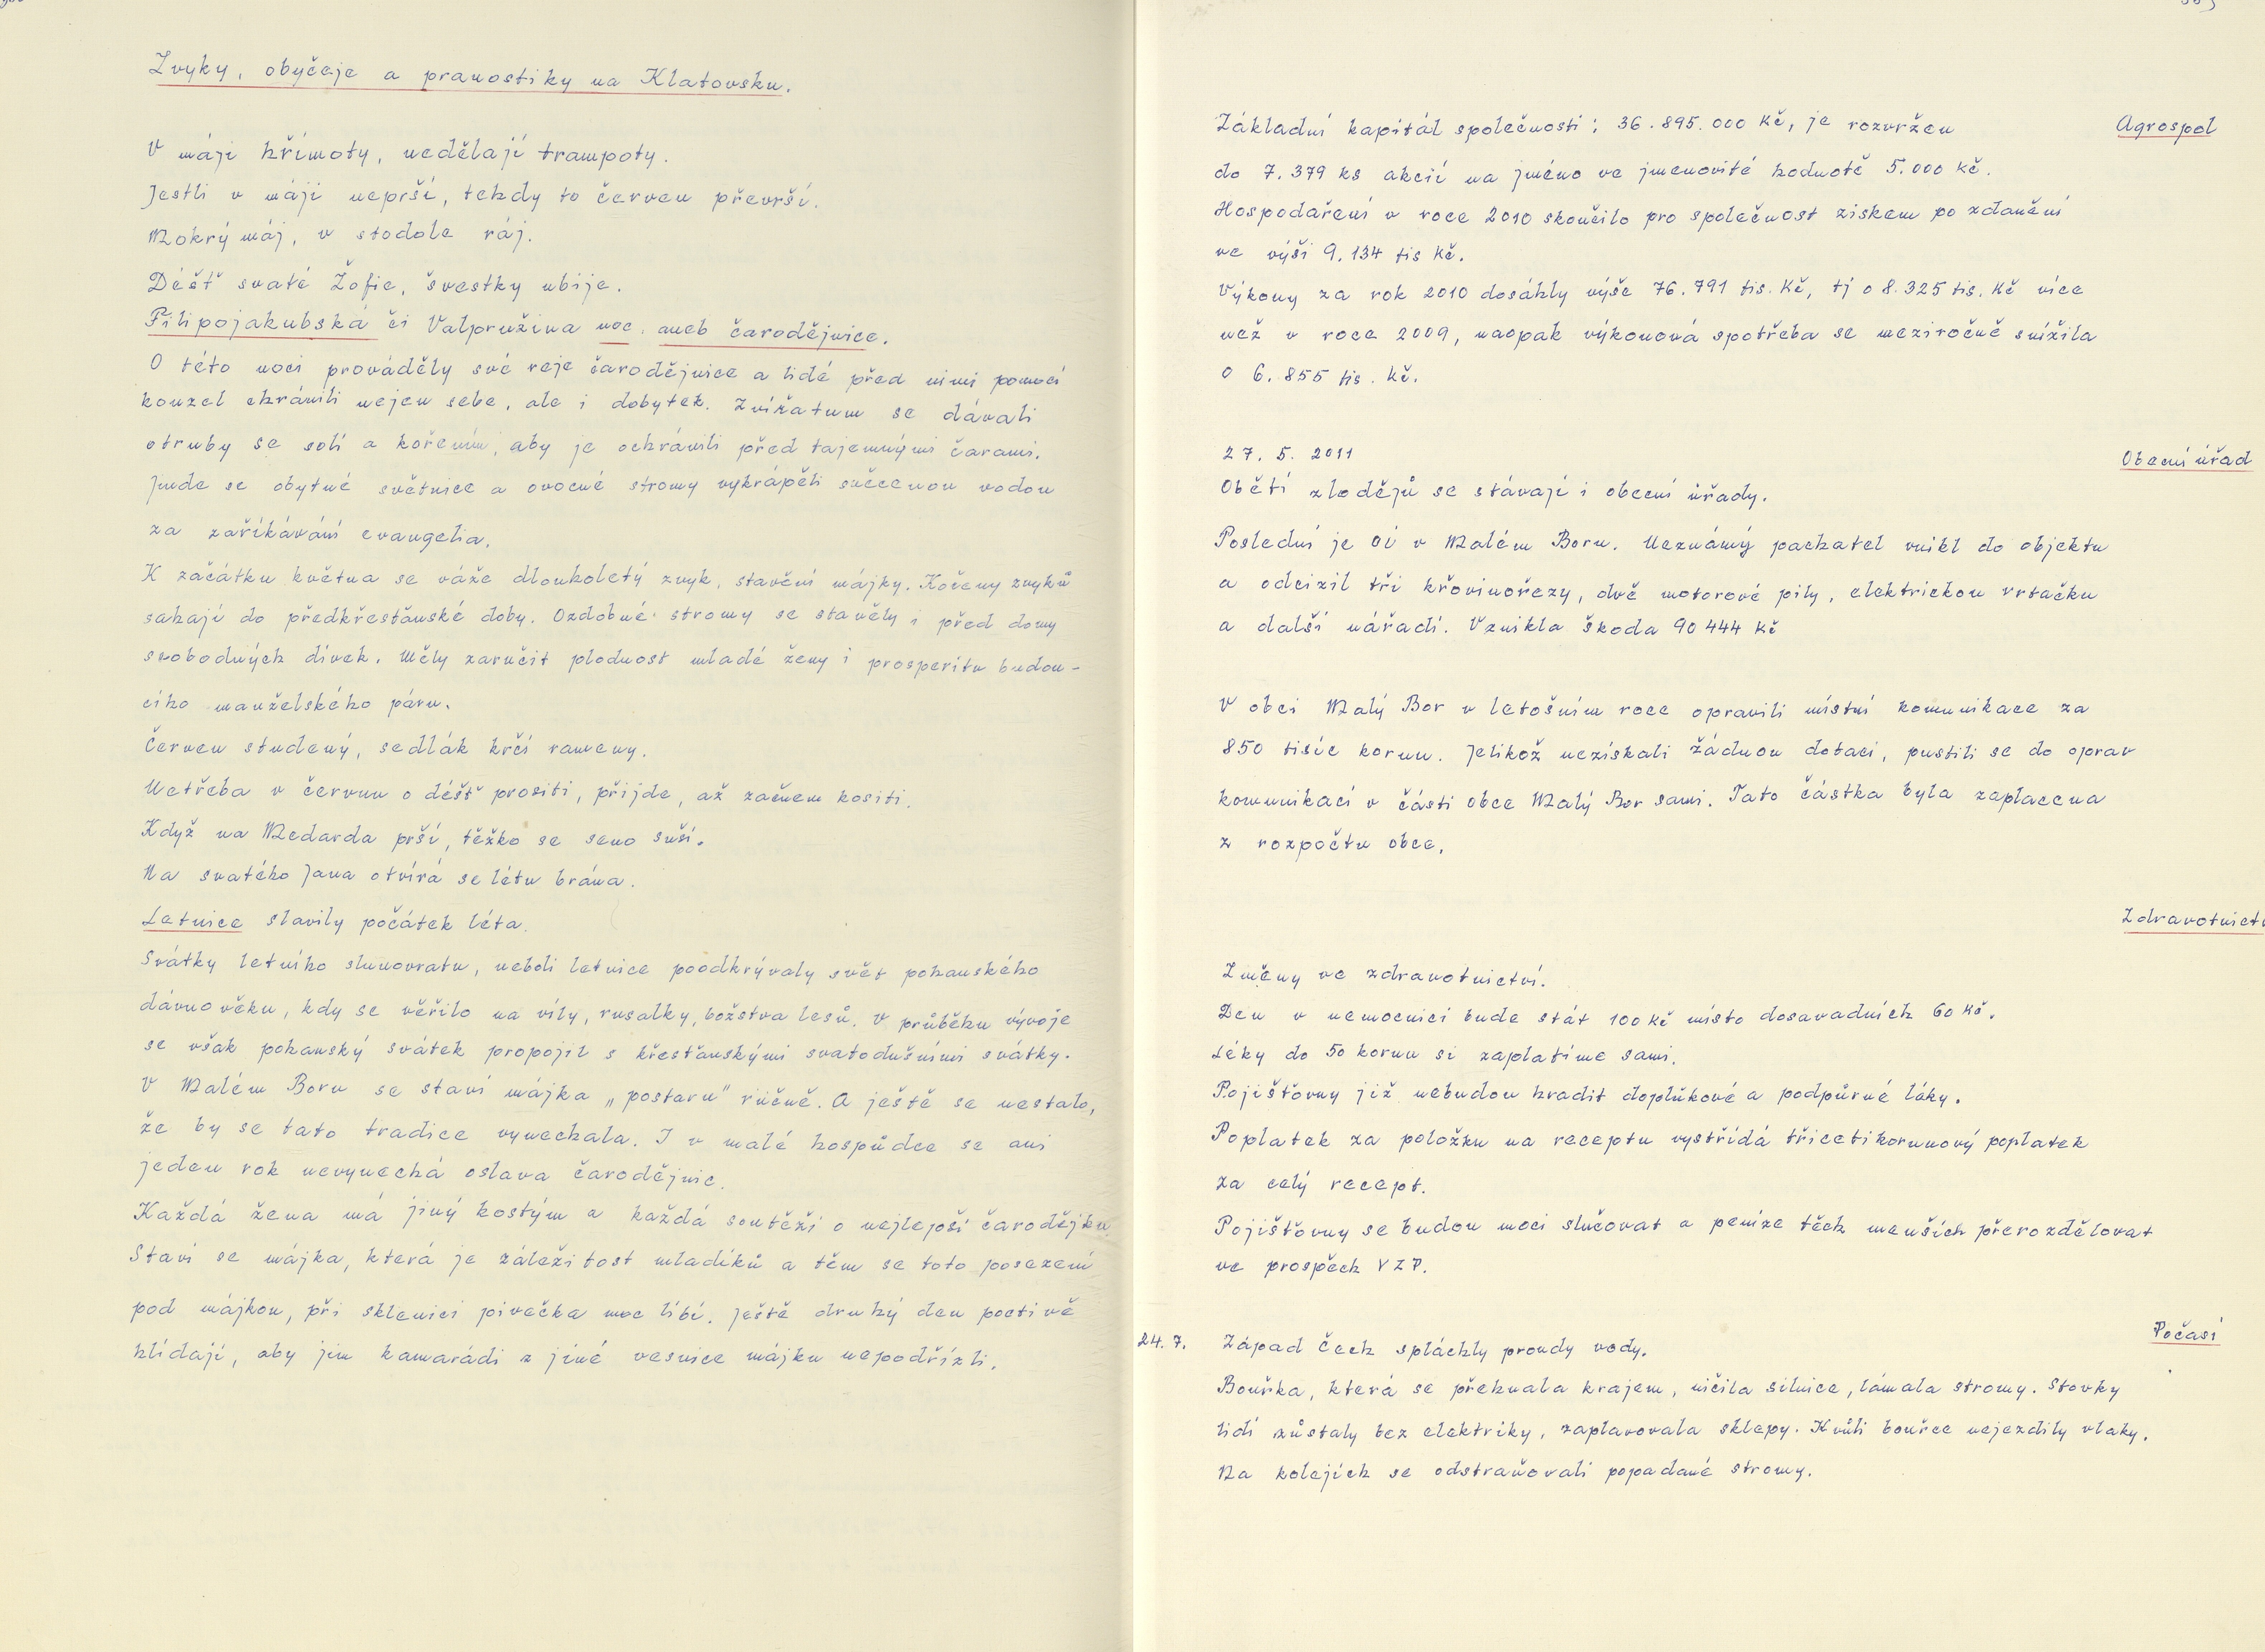 Zvyky, obyčeje a pranostiky na Klatovsku.
V máji hřímoty, nedělají trampoty.
Jestli v máji neprší, tehdy to červen převrší.
Mokrý máj, v stodole ráj.
Déšť svaté Žofie, švestky ubije.
Filipojakubská či Valpružina noc, aneb čarodějnice.
O této noci prováděly své reje čarodějnice a lidé před nimi pomocí
kouzel chránili nejen sebe, ale i dobytek. Zvířatum se dávali
otruby se solí a kořením, aby je ochránili před tajemnými čarami.
Jinde se obytné světnice a ovocné stromy vykrápěli svěcenou vodou
za zaříkávání evangelia.
K začátku května se váže dlouholetý zvyk, stavění májky. Kořeny zvyků
sahají do předkřesťanské doby. Ozdobné stromy se stavěly i před domy
svobodných dívek. Měly zaručit plodnost mladé ženy i prosperitu budou-
cího manželského páru.
Červen studený, sedlák krčí rameny.
Netřeba v červnu o déšť prositi, přijde, až začnem kositi.
Když na Medarda prší, těžko se seno suší.
Na svatého Jana otvírá se létu brána.
Letnice slavily počátek léta.
Svátky letního slunovratu, neboli letnice poodkrývaly svět pohanského
dávnověku, kdy se věřilo na víly, rusalky, božstva lesů. V průběhu vývoje
se však pohanský svátek propojil s křesťanskými svatodušními svátky.
V Malém Boru se staví májka „postaru" ručně. A ještě se nestalo,
že by se tato tradice vynechala. I v malé hospůdce se ani
jeden rok nevynechá oslava čarodějnic.
Každá žena má jiný kostým a každá soutěží o nejlepší čarodějku.
Staví se májka, která je záležitost mladíků a těm se toto posezení
pod májkou, při sklenici pivečka moc líbí. Ještě druhý den poctivě
hlídají, aby jim kamarádi z jiné vesnice májku nepodřízli.
Základní kapitál společnosti: 36.895.000 Kč, je rozvržen
Agrospol
do 7.379 ks akcií na jméno ve jmenovité hodnotě 5.000 Kč.
Hospodaření v roce 2010 skončilo pro společnost ziskem po zdanění
ve výši 9.134 tis Kč.
Výkony za rok 2010 dosáhly výše 76.791 tis. Kč, tj o 8.325 tis. Kč více
než v roce 2009, naopak výkonová spotřeba se meziročně snížila
o 6.855 tis. Kč.
27. 5. 2011
Obecní úřad
Obětí zlodějů se stávají i obecní úřady.
Poslední je OÚ v Malém Boru. Neznámý pachatel vnikl do objektu
a odcizil tři křovinořezy, dvě motorové pily, elektrickou vrtačku
a další nářadí. Vznikla škoda 90 444 Kč
V obci Malý Bor v letošním roce opravili místní komunikace za
850 tisíc korun. Jelikož nezískali žádnou dotaci, pustili se do oprav
komunikací v části obce Malý Bor sami. Tato částka byla zaplacena
z rozpočtu obce.
Zdravotnictv
Změny ve zdravotnictví.
Den v nemocnici bude stát 100 Kč místo dosavadních 60 Kč.
Léky do 50 korun si zaplatíme sami.
Pojišťovny již nebudou hradit doplňkové a podpůrné léky.
Poplatek za položku na receptu vystřídá třicetikorunový poplatek
za celý recept.
Pojišťovny se budou moci slučovat a peníze těch menších přerozdělovat
ve prospěch VZP.
Počasí
24. 7. Západ Čech spláchly proudy vody.
Bouřka, která se přehnala krajem, ničila silnice, lámala stromy. Stovky
lidí zůstaly bez elektriky, zaplavovala sklepy. Kvůli bouřce nejezdily vlaky.
Na kolejích se odstraňovali popadané stromy.